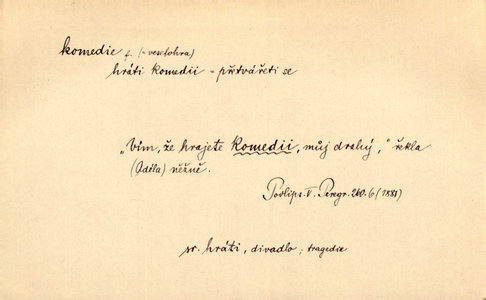 komedie f. (= veselohra)
hráti komedii = přetvářeti se
„Vím, že hrajete komedii, můj drahý,“ řekla
(Adéla) něžně.
Podlips. V. Peregr. 260. 6 (1881)
sr. hráti, divadlo; tragedie